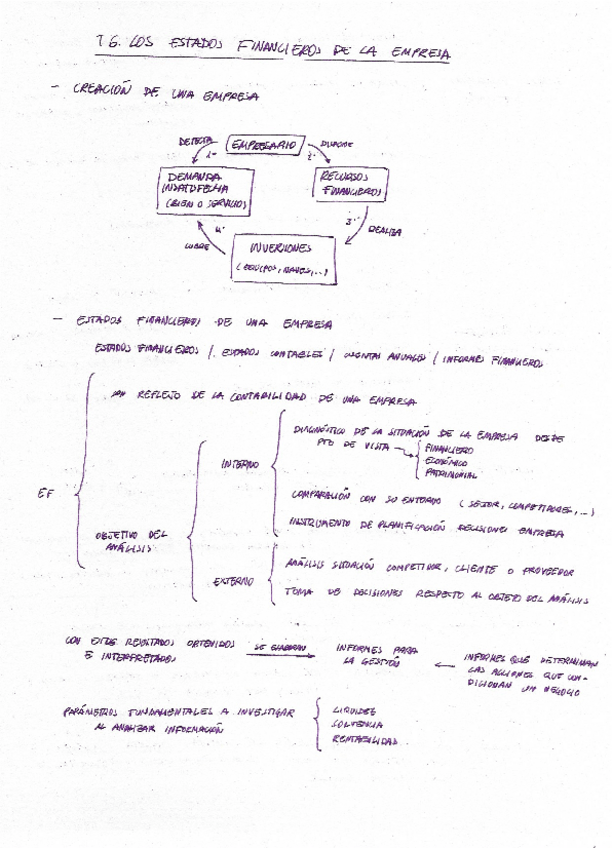 T6. LOS ESTADOS FINANCIEROS DE LA EMPRESA
- CREACIÓN DE UNA EMPRESA
DETECTA
1º
EMPRESARIO
2º
DISPONE
DEMANDA
INSATISFECHA
(BIEN O SERVICIO)
RECURSOS
FINANCIEROS
4º
CUBRE
3º
REALIZA
INVERSIONES
(EQUIPOS, NAVES, ...)
- ESTADOS FINANCIEROS DE UNA EMPRESA
ESTADOS FINANCIEROS / ESTADOS CONTABLES / CUENTAS ANUALES / INFORMES FINANCIEROS
SON REFLEJO DE LA CONTABILIDAD DE UNA EMPRESA
DIAGNÓSTICO DE LA SITUACIÓN DE LA EMPRESA DESDE
PTO DE VISTA
FINANCIERO
ECONÓMICO
PATRIMONIAL
INTERNO
COMPARACIÓN CON SU ENTORNO (SECTOR, COMPETIDORES, ...)
INSTRUMENTO DE PLANIFICACIÓN DECISIONES EMPRESA
EF
OBJETIVO DEL
ANÁLISIS
EXTERNO
ANÁLISIS SITUACIÓN COMPETIDOR, CLIENTE O PROVEEDOR
TOMA DE DECISIONES RESPECTO AL OBJETO DEL ANÁLISIS
CON ESTOS RESULTADOS OBTENIDOS
E INTERPRETADOS
SE ELABORAN
INFORMES PARA
LA GESTIÓN
INFORMES QUE DETERMINAN
LAS ACCIONES QUE CON-
DICIONAN UN NEGOCIO
PARÁMETROS FUNDAMENTALES A INVESTIGAR
AL ANALIZAR INFORMACIÓN
LIQUIDEZ
SOLVENCIA
RENTABILIDAD